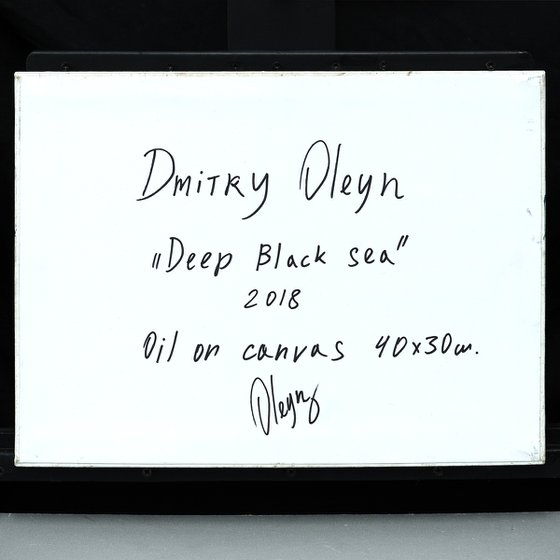 Dmitry Oleyn
„Deep Black sea"
2018
Oil on canvas 40x30cm.
Oleyn